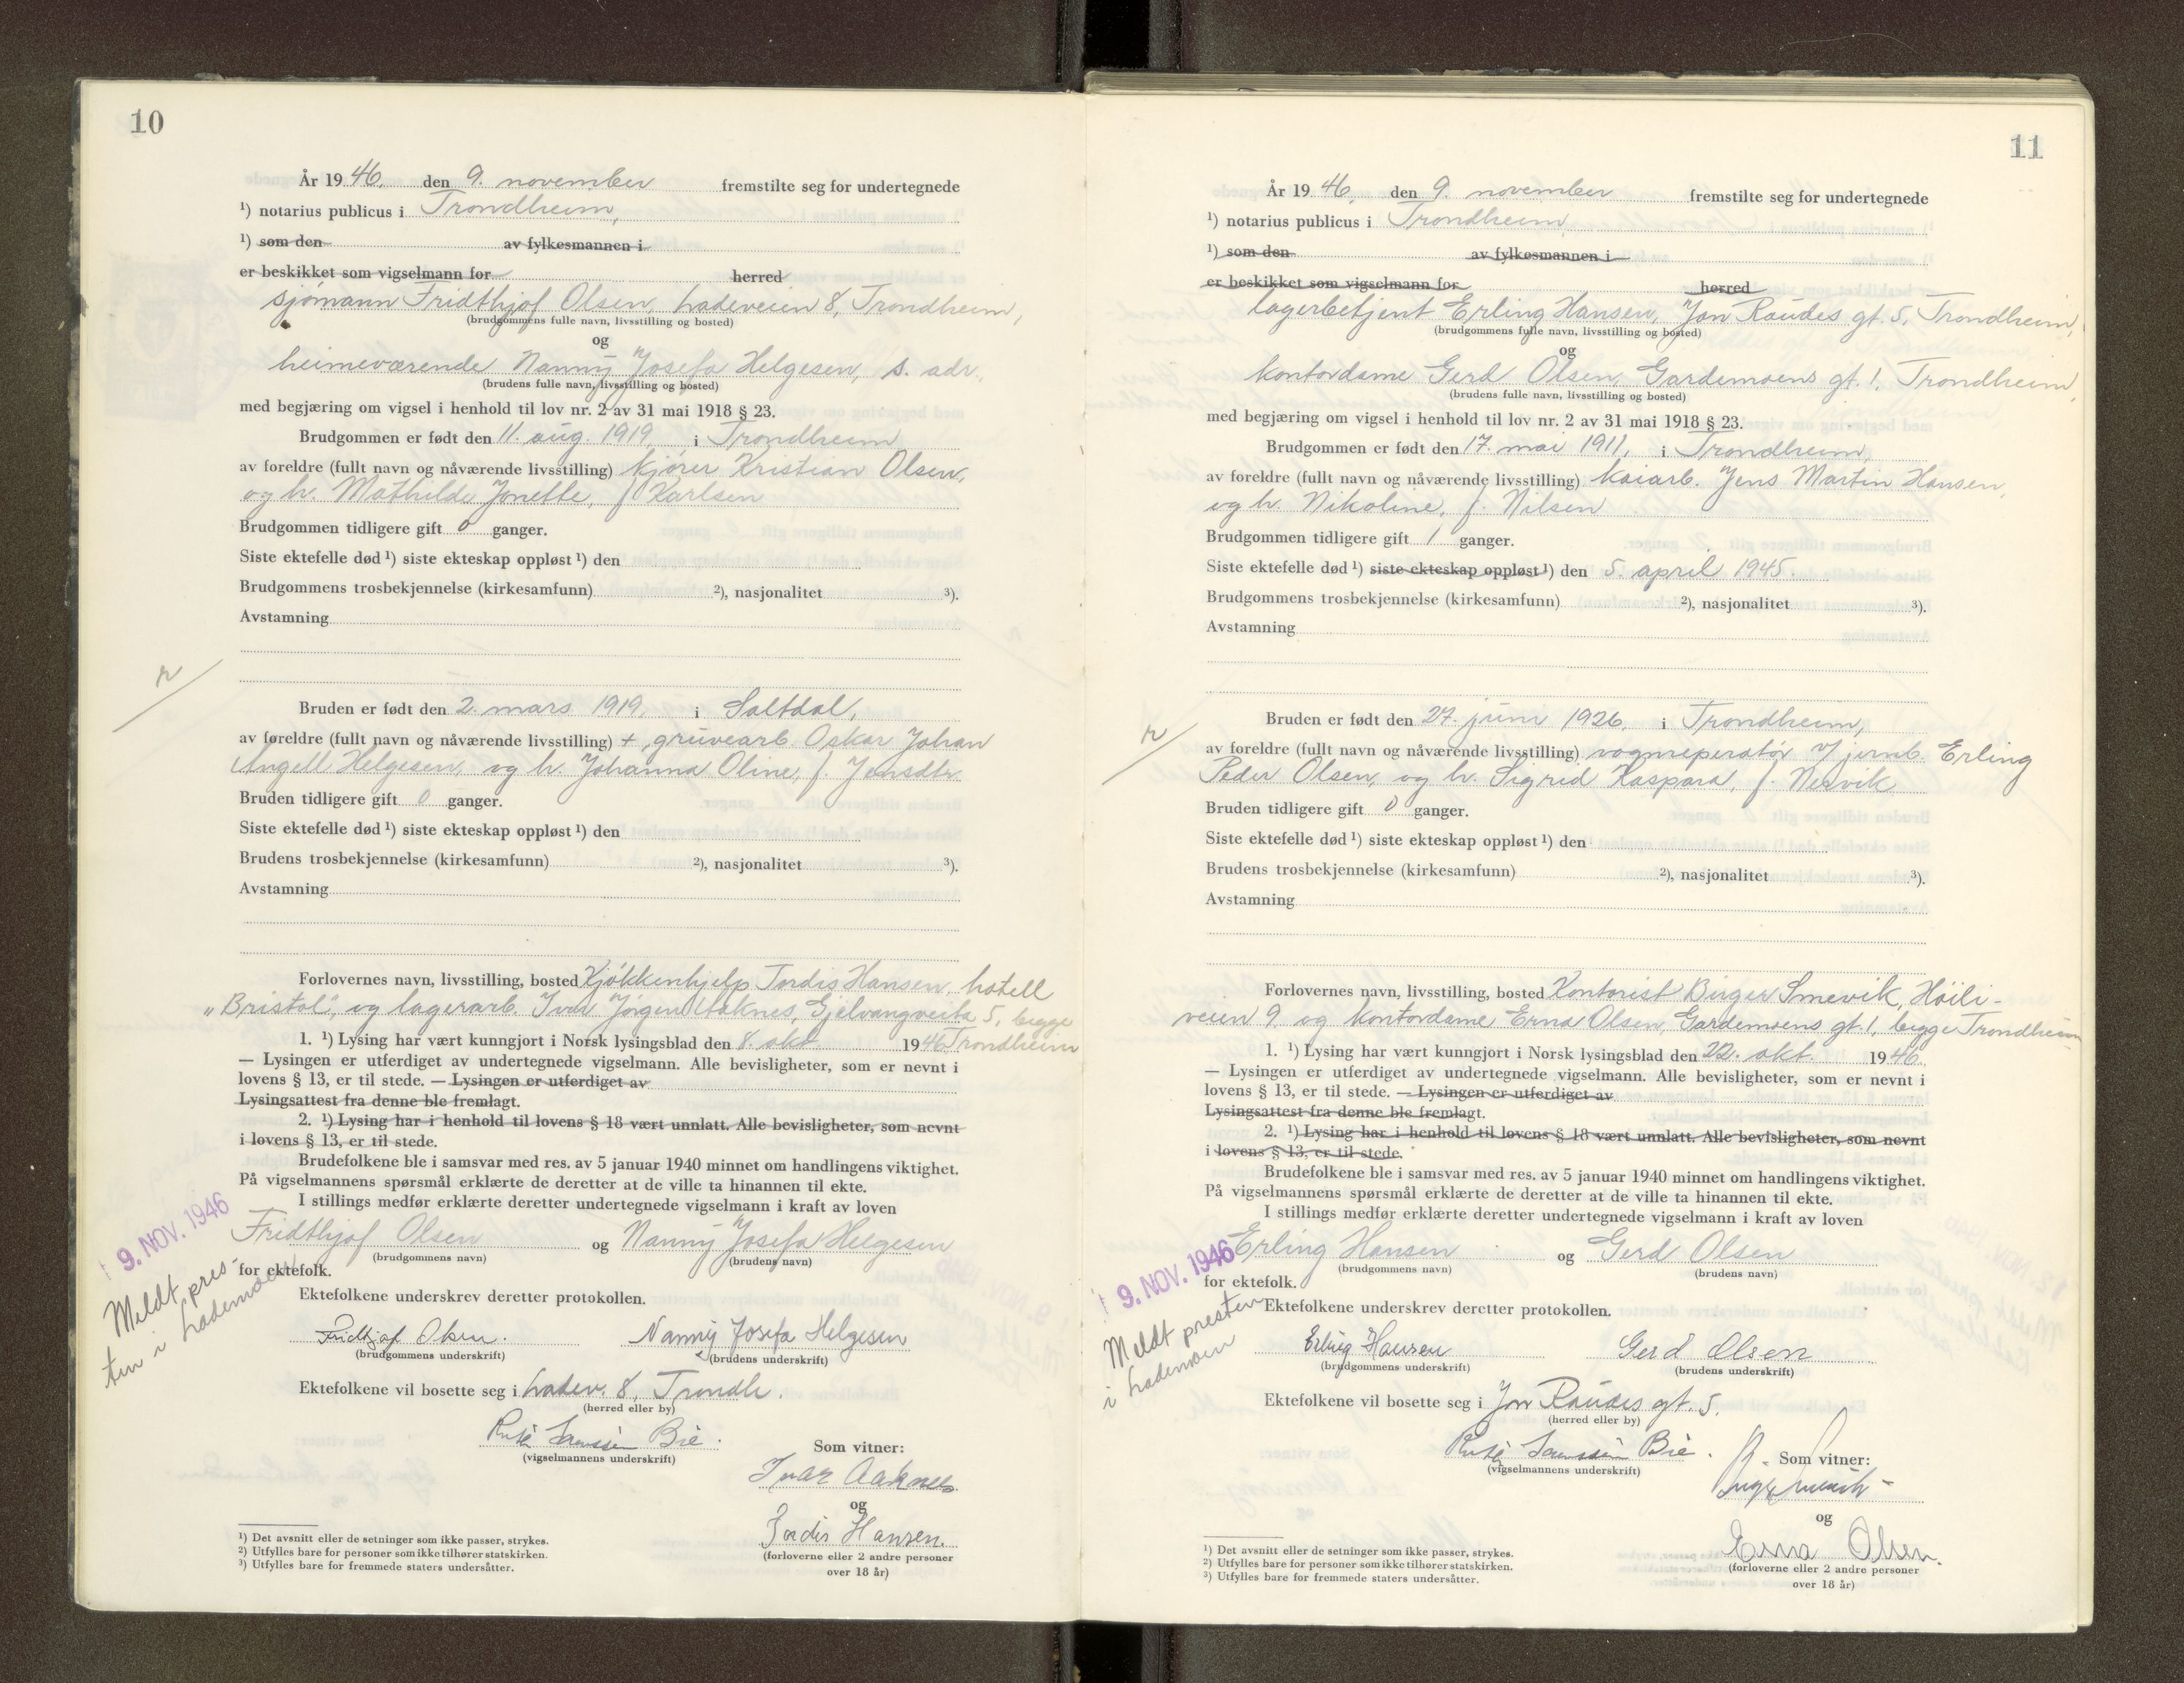 10
År 19 46. den 9. november fremstilte seg for undertegnede
¹) notarius publicus i Trondheim,
¹) som den av fylkesmannen i
er beskikket som vigselmann for herred
sjömann Fridthjof Olsen, Ladeveien 8, Trondheim,
(brudgommens fulle navn, livsstilling og bosted)
og
heimeværende Nanny Josefa Helgesen, s. adr.,
(brudens fulle navn, livsstilling og bosted)
med begjæring om vigsel i henhold til lov nr. 2 av 31 mai 1918 § 23.
Brudgommen er født den 11. aug. 1919, i Trondheim
av foreldre (fullt navn og nåværende livsstilling) kjörer Kristian Olsen,
og h. Mathilde Jonette, f. Karlsen
Brudgommen tidligere gift 0 ganger.
Siste ektefelle død ¹) siste ekteskap oppløst ¹) den
Brudgommens trosbekjennelse (kirkesamfunn) ²), nasjonalitet ³).
Avstamning
Bruden er født den 2. mars 1919, i Saltdal,
av foreldre (fullt navn og nåværende livsstilling) + gruvearb. Oskar Johan
Angell Helgesen, og h. Johanna Oline, f. Jensdtr.
Bruden tidligere gift 0 ganger.
Siste ektefelle død ¹) siste ekteskap oppløst ¹) den
Brudens trosbekjennelse (kirkesamfunn) ²), nasjonalitet ³).
Avstamning
Forlovernes navn, livsstilling, bosted Kjökkenhjelp Tordis Hansen, hotell
"Bristol", og lagerarb. Ivar Jörgen Aaknes, Gjelvangveita 5, begge
1. ¹) Lysing har vært kunngjort i Norsk lysingsblad den 8. okt. 1946 Trondheim
— Lysingen er utferdiget av undertegnede vigselmann. Alle bevisligheter, som er nevnt i
lovens § 13, er til stede. — Lysingen er utferdiget av
Lysingsattest fra denne ble fremlagt.
2. ¹) Lysing har i henhold til lovens § 18 vært unnlatt. Alle bevisligheter, som nevnt
i lovens § 13, er til stede.
Brudefolkene ble i samsvar med res. av 5 januar 1940 minnet om handlingens viktighet.
På vigselmannens spørsmål erklærte de deretter at de ville ta hinannen til ekte.
I stillings medfør erklærte deretter undertegnede vigselmann i kraft av loven
Fridthjof Olsen og Nanny Josefa Helgesen
(brudgommens navn) (brudens navn)
for ektefolk.
9. NOV. 1946
Meldt pres-
ten i Lademoen
Ektefolkene underskrev deretter protokollen.
Fridthjof Olsen. Nanny Josefa Helgesen
(brudgommens underskrift) (brudens underskrift)
Ektefolkene vil bosette seg i Ladev. 8, Trondh.
(herred eller by)
Bie.
(vigselmannens underskrift)
Som vitner:
Ivar Aaknes
og
Tordis Hansen.
(forloverne eller 2 andre personer
over 18 år)
¹) Det avsnitt eller de setninger som ikke passer, strykes.
²) Utfylles bare for personer som ikke tilhører statskirken.
³) Utfylles bare for fremmede staters undersåtter.
11
År 19 46, den 9. november fremstilte seg for undertegnede
¹) notarius publicus i Trondheim
¹) som den av fylkesmannen i
er beskikket som vigselmann for herred
lagerbetjent Erling Hansen, Jon Raudes gt. 5, Trondheim,
(brudgommens fulle navn, livsstilling og bosted)
og
kontordame Gerd Olsen, Gardemoens gt. 1, Trondheim,
(brudens fulle navn, livsstilling og bosted)
med begjæring om vigsel i henhold til lov nr. 2 av 31 mai 1918 § 23.
Brudgommen er født den 17. mai 1911, i Trondheim,
av foreldre (fullt navn og nåværende livsstilling) kaiarb. Jens Martin Hansen,
og h. Nikoline, f. Nilsen
Brudgommen tidligere gift 1 ganger.
Siste ektefelle død ¹) siste ekteskap oppløst ¹) den 5. april 1945.
Brudgommens trosbekjennelse (kirkesamfunn) ²), nasjonalitet ³).
Avstamning
Bruden er født den 27. juni 1926, i Trondheim,
av foreldre (fullt navn og nåværende livsstilling) vognreperatör v/ jernb. Erling
Peder Olsen, og h. Sigrid Kaspara, f. Nervik
Bruden tidligere gift 0 ganger.
Siste ektefelle død ¹) siste ekteskap oppløst ¹) den
Brudens trosbekjennelse (kirkesamfunn) ²), nasjonalitet ³).
Avstamning
Forlovernes navn, livsstilling, bosted Kontorist Birger Smevik, Höili-
veien 9, og kontordame Erna Olsen, Gardemoens gt. 1, begge Trondheim
1. ¹) Lysing har vært kunngjort i Norsk lysingsblad den 22. okt. 1946
— Lysingen er utferdiget av undertegnede vigselmann. Alle bevisligheter, som er nevnt i
lovens § 13, er til stede. — Lysingen er utferdiget av
Lysingsattest fra denne ble fremlagt.
2. ¹) Lysing har i henhold til lovens § 18 vært unnlatt. Alle bevisligheter, som nevnt
i lovens § 13, er til stede.
Brudefolkene ble i samsvar med res. av 5 januar 1940 minnet om handlingens viktighet.
På vigselmannens spørsmål erklærte de deretter at de ville ta hinannen til ekte.
I stillings medfør erklærte deretter undertegnede vigselmann i kraft av loven
Erling Hansen og Gerd Olsen
(brudgommens navn) (brudens navn)
for ektefolk.
9. NOV. 1946
Meldt presten
i Lademoen
Ektefolkene underskrev deretter protokollen.
Erling Hansen Gerd Olsen
(brudgommens underskrift) (brudens underskrift)
Ektefolkene vil bosette seg i Jon Raudes gt. 5.
(herred eller by)
Bie.
(vigselmannens underskrift)
Som vitner:
og
Erna Olsen.
(forloverne eller 2 andre personer
over 18 år)
¹) Det avsnitt eller de setninger som ikke passer, strykes.
²) Utfylles bare for personer som ikke tilhører statskirken.
³) Utfylles bare for fremmede staters undersåtter.